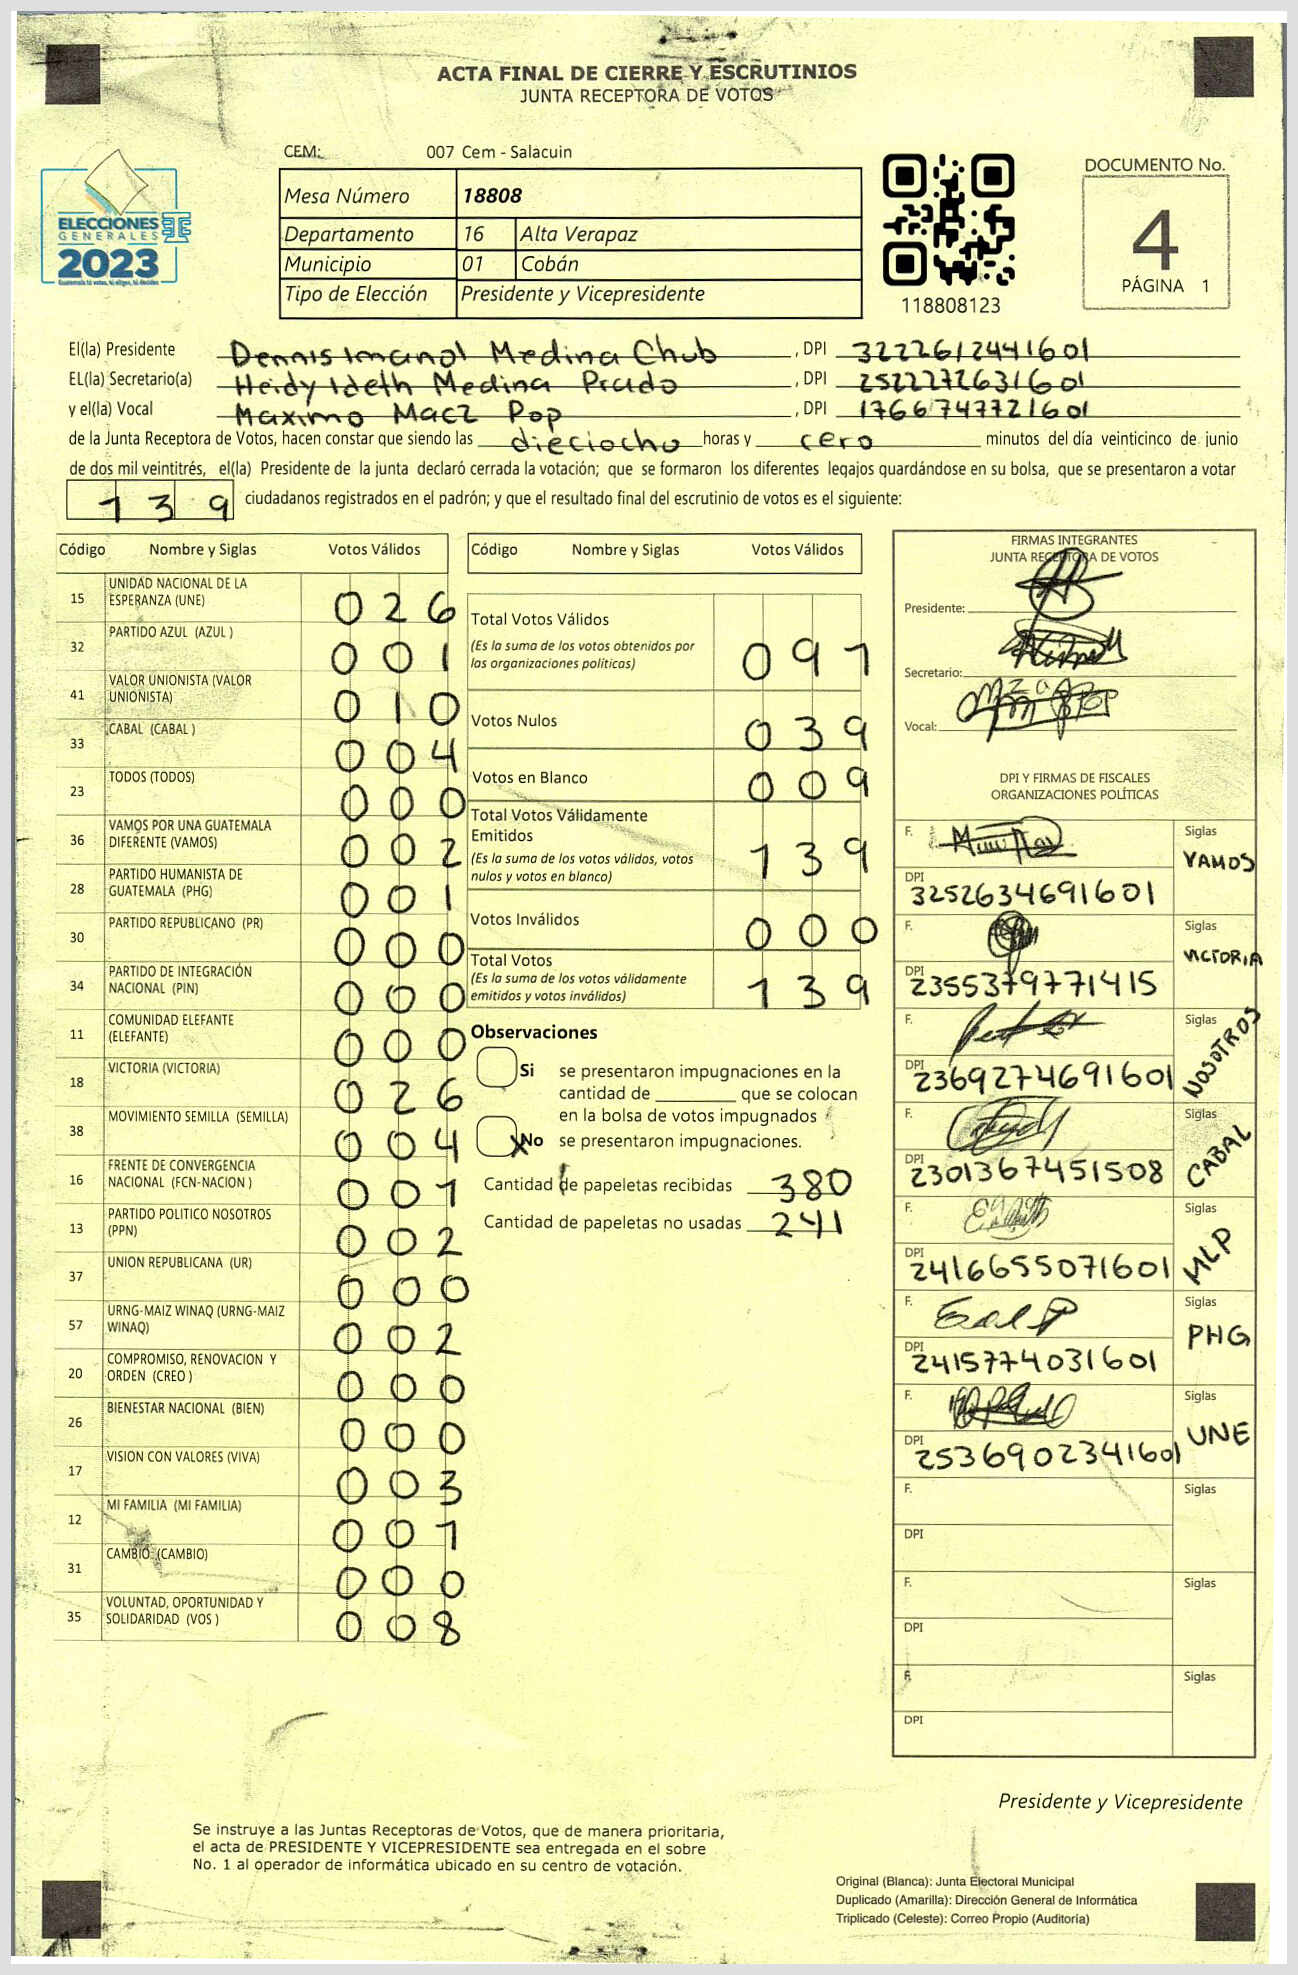 ACTA FINAL DE CIERRE Y ESCRUTINIOS
JUNTA RECEPTORA DE VOTOS
CEM: 007 Cem - Salacuin
ELECCIONES
GENERALES
2023
Guatemala tú votas, tú eliges, tú decides
Mesa Número 18808
Departamento 16 Alta Verapaz
Municipio 01 Cobán
Tipo de Elección Presidente y Vicepresidente
118808123
DOCUMENTO No.
4
PÁGINA 1
El(la) Presidente Dennis Imanol Medina Chub , DPI 3222612441601
EL(la) Secretario(a) Heidy Ideth Medina Prado , DPI 2522272631601
y el(la) Vocal Maximo Macz Pop , DPI 1766747721601
de la Junta Receptora de Votos, hacen constar que siendo las dieciocho horas y cero minutos del día veinticinco de junio
de dos mil veintitrés, el(la) Presidente de la junta declaró cerrada la votación; que se formaron los diferentes legajos quardándose en su bolsa, que se presentaron a votar
139 ciudadanos registrados en el padrón; y que el resultado final del escrutinio de votos es el siguiente:
Código Nombre y Siglas Votos Válidos
15 UNIDAD NACIONAL DE LA ESPERANZA (UNE) 026
32 PARTIDO AZUL (AZUL ) 001
41 VALOR UNIONISTA (VALOR UNIONISTA) 010
33 CABAL (CABAL ) 004
23 TODOS (TODOS) 000
36 VAMOS POR UNA GUATEMALA DIFERENTE (VAMOS) 002
28 PARTIDO HUMANISTA DE GUATEMALA (PHG) 001
30 PARTIDO REPUBLICANO (PR) 000
34 PARTIDO DE INTEGRACIÓN NACIONAL (PIN) 000
11 COMUNIDAD ELEFANTE (ELEFANTE) 000
18 VICTORIA (VICTORIA) 026
38 MOVIMIENTO SEMILLA (SEMILLA) 004
16 FRENTE DE CONVERGENCIA NACIONAL (FCN-NACION ) 001
13 PARTIDO POLITICO NOSOTROS (PPN) 002
37 UNION REPUBLICANA (UR) 000
57 URNG-MAIZ WINAQ (URNG-MAIZ WINAQ) 002
20 COMPROMISO, RENOVACION Y ORDEN (CREO ) 000
26 BIENESTAR NACIONAL (BIEN) 000
17 VISION CON VALORES (VIVA) 003
12 MI FAMILIA (MI FAMILIA) 001
31 CAMBIO (CAMBIO) 000
35 VOLUNTAD, OPORTUNIDAD Y SOLIDARIDAD (VOS ) 008
Código Nombre y Siglas Votos Válidos
Total Votos Válidos
(Es la suma de los votos obtenidos por
las organizaciones políticas) 091
Votos Nulos 039
Votos en Blanco 009
Total Votos Válidamente
Emitidos
(Es la suma de los votos válidos, votos
nulos y votos en blanco) 139
Votos Inválidos 000
Total Votos
(Es la suma de los votos válidamente
emitidos y votos inválidos) 139
Observaciones
Si se presentaron impugnaciones en la
cantidad de ________ que se colocan
en la bolsa de votos impugnados
X No se presentaron impugnaciones.
Cantidad de papeletas recibidas 380
Cantidad de papeletas no usadas 241
FIRMAS INTEGRANTES
JUNTA RECEPTORA DE VOTOS
Presidente:
Secretario:
Vocal:
DPI Y FIRMAS DE FISCALES
ORGANIZACIONES POLÍTICAS
F. Siglas VAMOS
DPI 3252634691601
F. Siglas VICTORIA
DPI 2355379771415
F. Siglas NOSOTROS
DPI 2369274691601
F. Siglas CABAL
DPI 2301367451508
F. Siglas MLP
DPI 2416655071601
F. Siglas PHG
DPI 2415774031601
F. Siglas UNE
DPI 2536902341601
F. Siglas
DPI
F. Siglas
DPI
F. Siglas
DPI
Presidente y Vicepresidente
Se instruye a las Juntas Receptoras de Votos, que de manera prioritaria,
el acta de PRESIDENTE Y VICEPRESIDENTE sea entregada en el sobre
No. 1 al operador de informática ubicado en su centro de votación.
Original (Blanca): Junta Electoral Municipal
Duplicado (Amarilla): Dirección General de Informática
Triplicado (Celeste): Correo Propio (Auditoría)